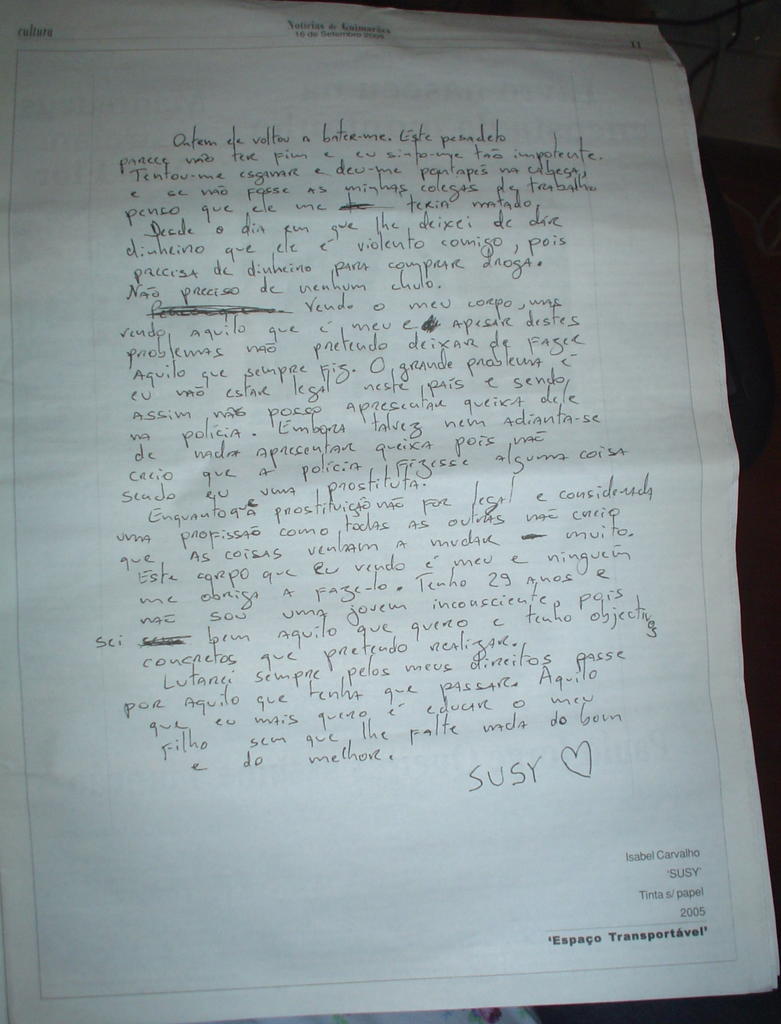 cultura
Notícias de Guimarães
16 de Setembro 2005
11
Ontem ele voltou a bater-me. Este pesadelo
parece não ter fim e eu sinto-me tão impotente.
Tentou-me esganar e deu-me pontapés na cabeça,
e se não fosse as minhas colegas de trabalho
penso que ele me teria matado.
Desde o dia em que lhe deixei de dar
dinheiro que ele é violento comigo, pois
precisa de dinheiro para comprar droga.
Não preciso de nenhum chulo.
Vendo o meu corpo, mas
vendo aquilo que é meu e apesar destes
problemas não pretendo deixar de fazer
aquilo que sempre fiz. O grande problema é
eu não estar legal neste país e sendo
assim não posso apresentar queixa dele
na polícia. Embora talvez nem adianta-se
de nada apresentar queixa pois não
creio que a polícia fizesse alguma coisa
sendo eu uma prostituta.
Enquanto a prostituição não for legal e considerada
uma profissão como todas as outras não creio
que as coisas venham a mudar muito.
Este corpo que eu vendo é meu e ninguém
me obriga a faze-lo. Tenho 29 anos e
não sou uma jovem inconsciente, pois
sei bem aquilo que quero e tenho objectivos
concretos que pretendo realizar.
Lutarei sempre pelos meus direitos passe
por aquilo que tenha que passar. Aquilo
que eu mais quero é educar o meu
filho sem que lhe falte nada do bom
e do melhor.
SUSY ♡
Isabel Carvalho
'SUSY'
Tinta s/ papel
2005
'Espaço Transportável'